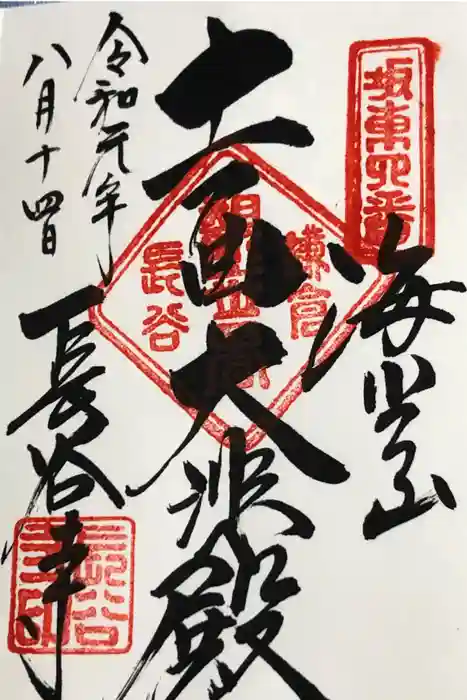 坂東四番
海光山
十一面大悲殿
鎌倉
長谷
令和元年
八月十四日
長谷寺
長谷寺印